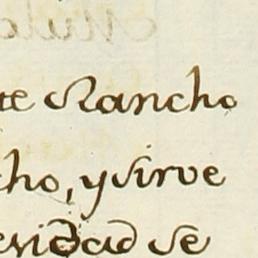 te Rancho
cho, y sirve
eridad se